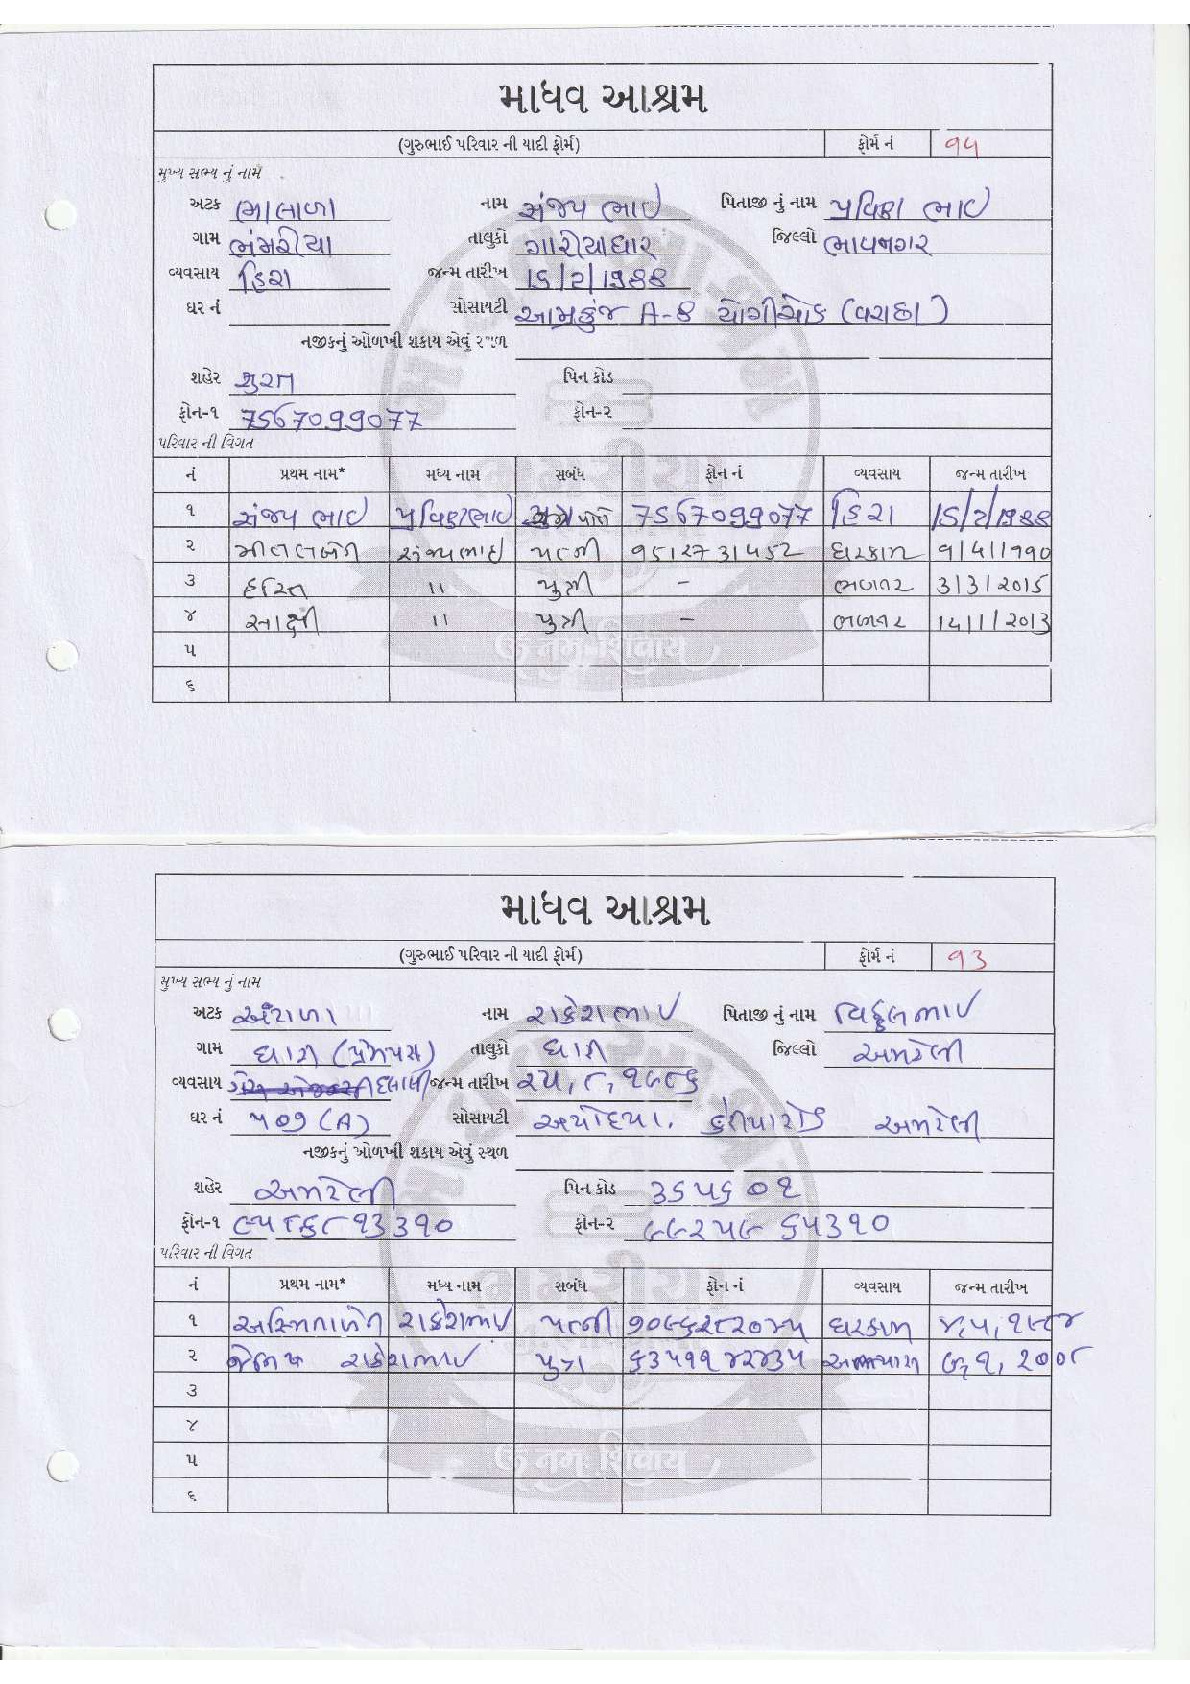 માધવ આશ્રમ
(ગુરુભાઈ પરિવાર ની યાદી ફોર્મ) ફોર્મ નં ૧૫
મુખ્ય સભ્ય નું નામ
અટક ભાલાળા નામ સંજય ભાઈ પિતાજી નું નામ પ્રવિણ ભાઈ
ગામ ભંમરીયા તાલુકો ગારીયાધાર જિલ્લો ભાવનગર
વ્યવસાય હિરા જન્મ તારીખ
ઘર નં સોસાયટી આમ્રકુંજ A-8 યોગીચોક (વરાછા)
નજીકનું ઓળખી શકાય એવું સ્થળ
શહેર સુરત પિન કોડ
ફોન-૧ 7567099077 ફોન-૨
પરિવાર ની વિગત
નં પ્રથમ નામ* મધ્ય નામ સબંધ ફોન નં વ્યવસાય જન્મ તારીખ
૧ સંજય ભાઈ પ્રવિણભાઈ પોતે 7567099077 હિરા
૨ સંજયભાઇ પત્ની ઘરકામ ૧/4/1990
૩ " પુત્રી - ભણતર 3/3/2015
૪ સાક્ષી " પુત્રી - ભણતર
૫
૬
માધવ આશ્રમ
(ગુરુભાઈ પરિવાર ની યાદી ફોર્મ) ફોર્મ નં ૧૩
મુખ્ય સભ્ય નું નામ
અટક નામ રાકેશભાઈ પિતાજી નું નામ વિઠ્ઠલભાઈ
ગામ ધારી (પ્રેમપરા) તાલુકો ધારી જિલ્લો અમરેલી
વ્યવસાય દલાલી જન્મ તારીખ ૨૫,૮,૧૯૮૬
ઘર નં ૫૦૧ (A) સોસાયટી અયોધ્યા. કેરીયારોડ અમરેલી
નજીકનું ઓળખી શકાય એવું સ્થળ
શહેર અમરેલી પિન કોડ ૩૬૫૬૦૧
ફોન-૧ ફોન-૨ ૯૯૨૫૯ ૬૫૩૧૦
પરિવાર ની વિગત
નં પ્રથમ નામ* મધ્ય નામ સબંધ ફોન નં વ્યવસાય જન્મ તારીખ
૧ અસ્મિતાબેન રાકેશભાઈ પત્ની ઘરકામ ૪,૫,૧૯૮૪
૨ રાકેશભાઈ પુત્ર ૬૩૫૧૧૪૨૪૩૫ અભ્યાસ
૩
૪
૫
૬